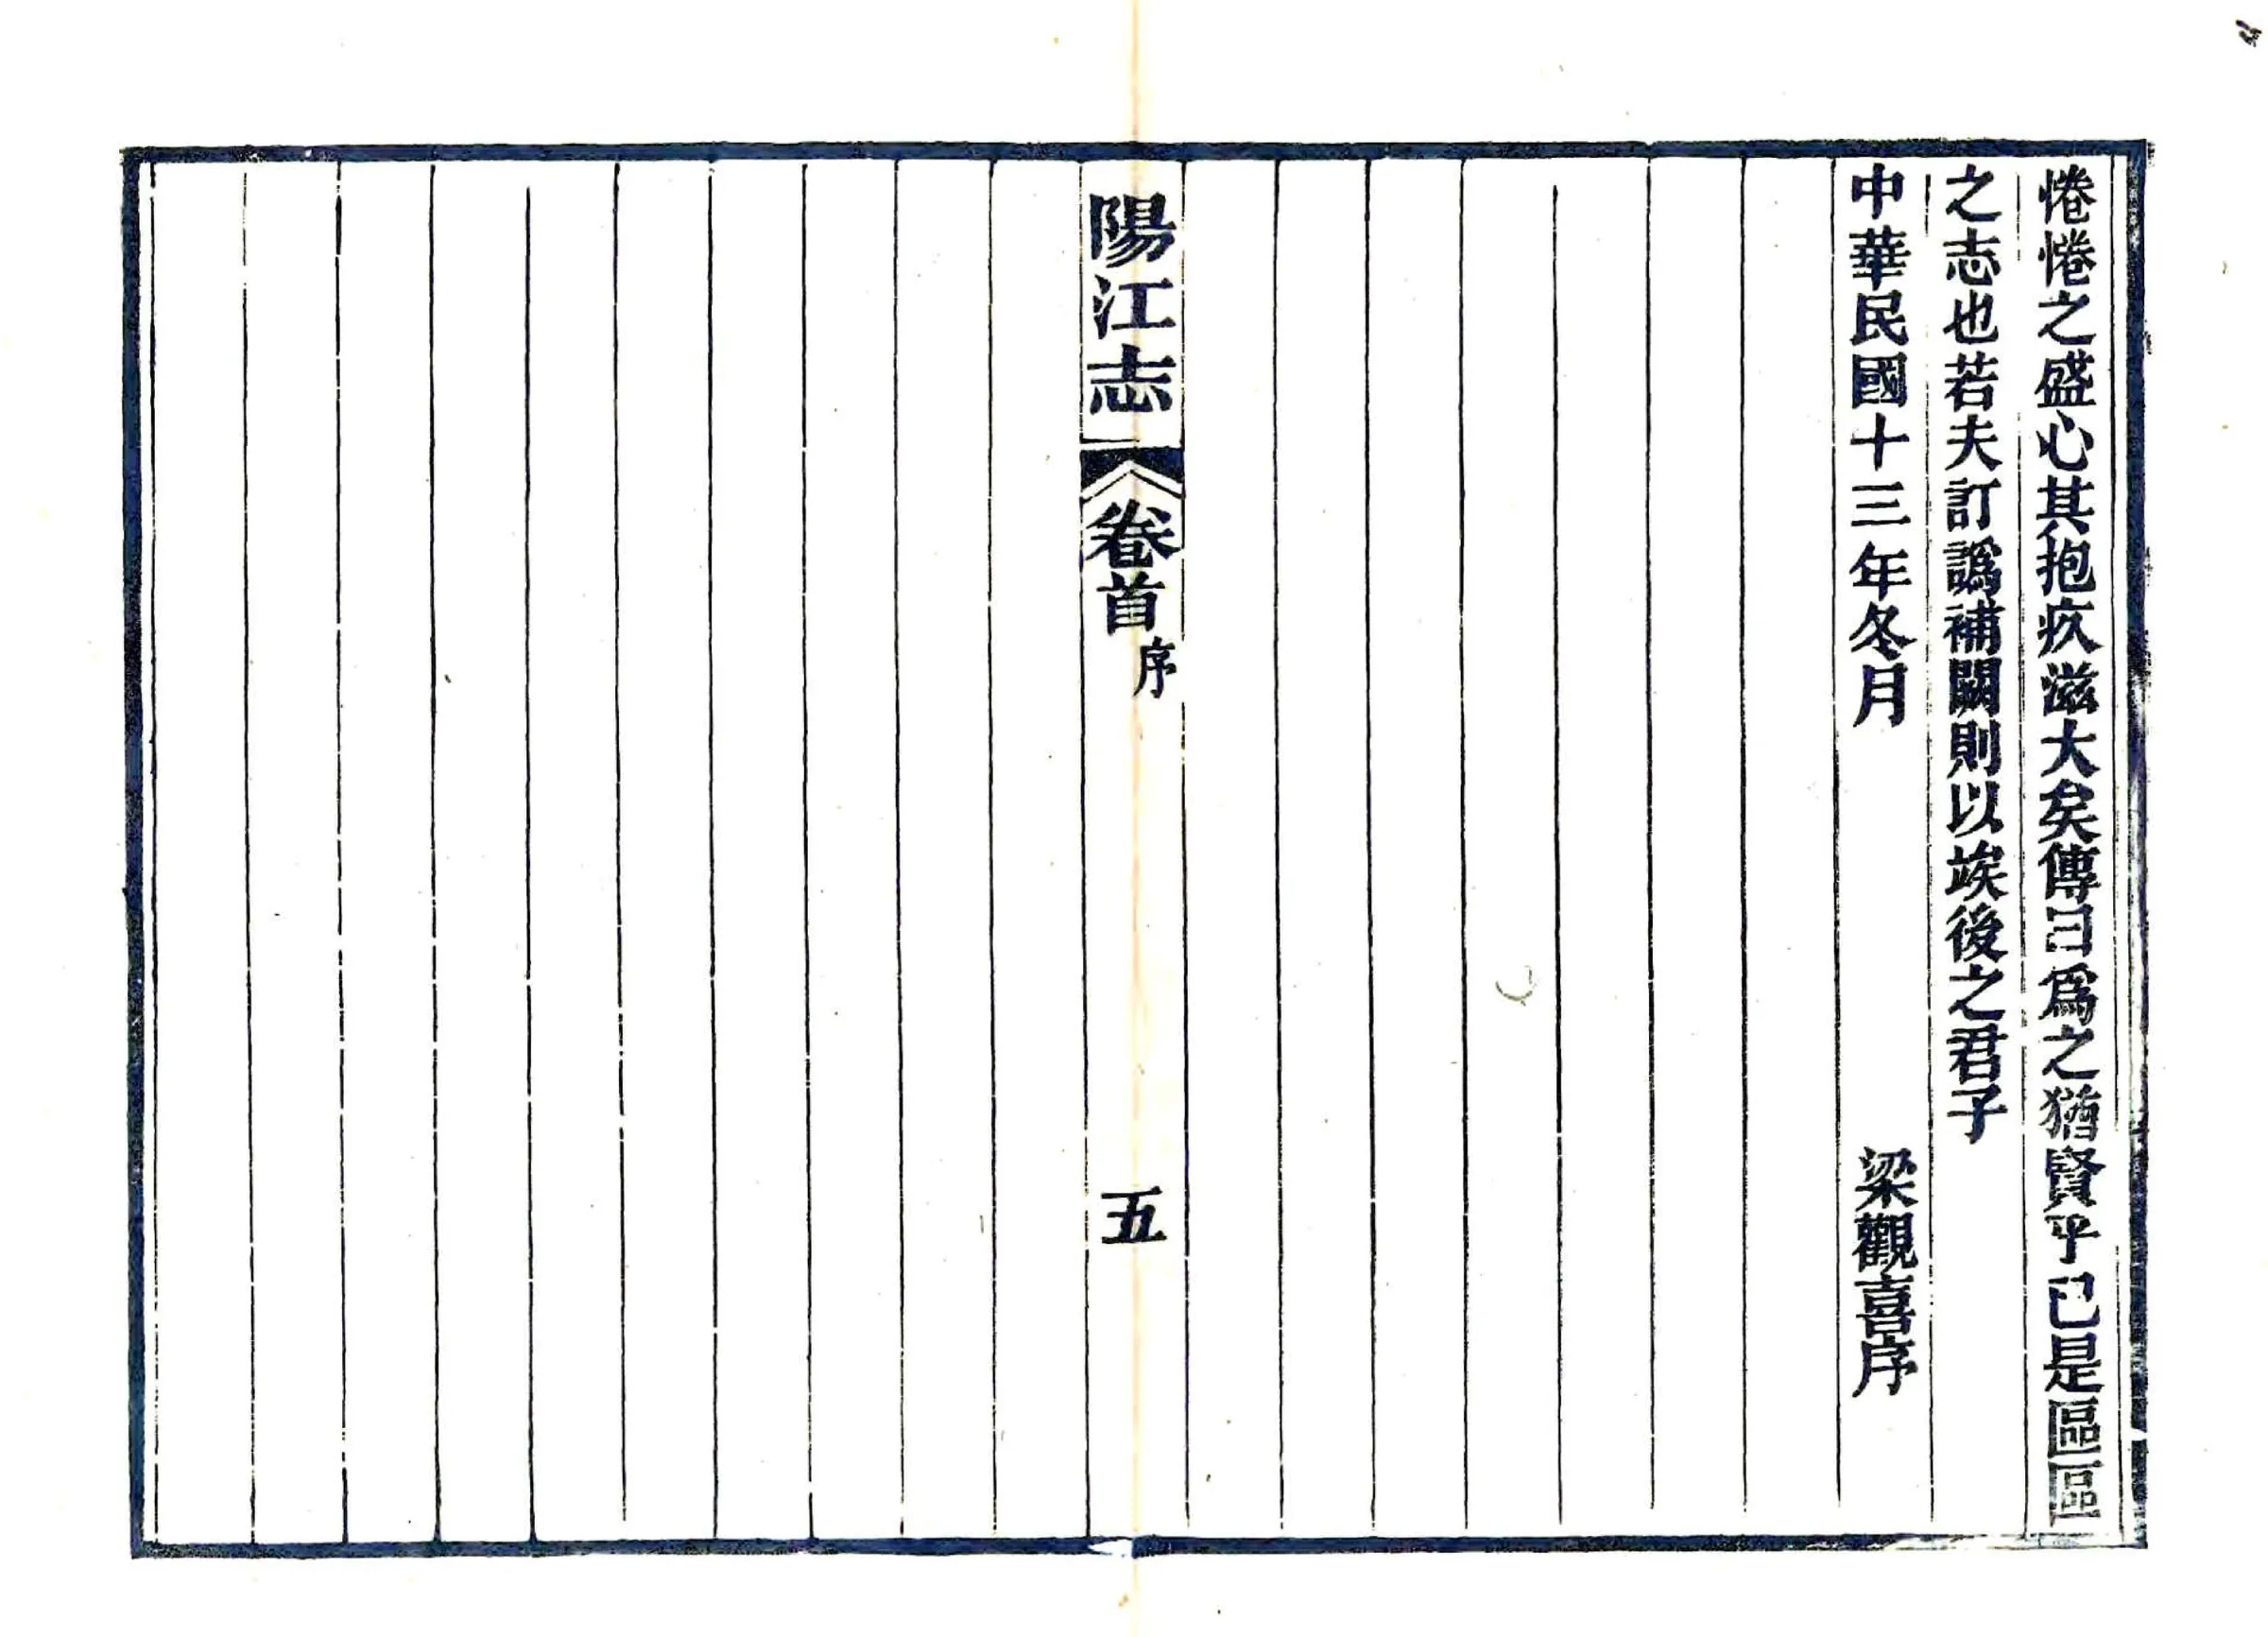 惓惓之盛心其抱疚滋大矣傳曰爲之猶賢乎已是區區
之志也若夫訂譌補闕則以竢後之君子
中華民國十三年冬月 梁觀喜序
陽江志 卷首 序 五